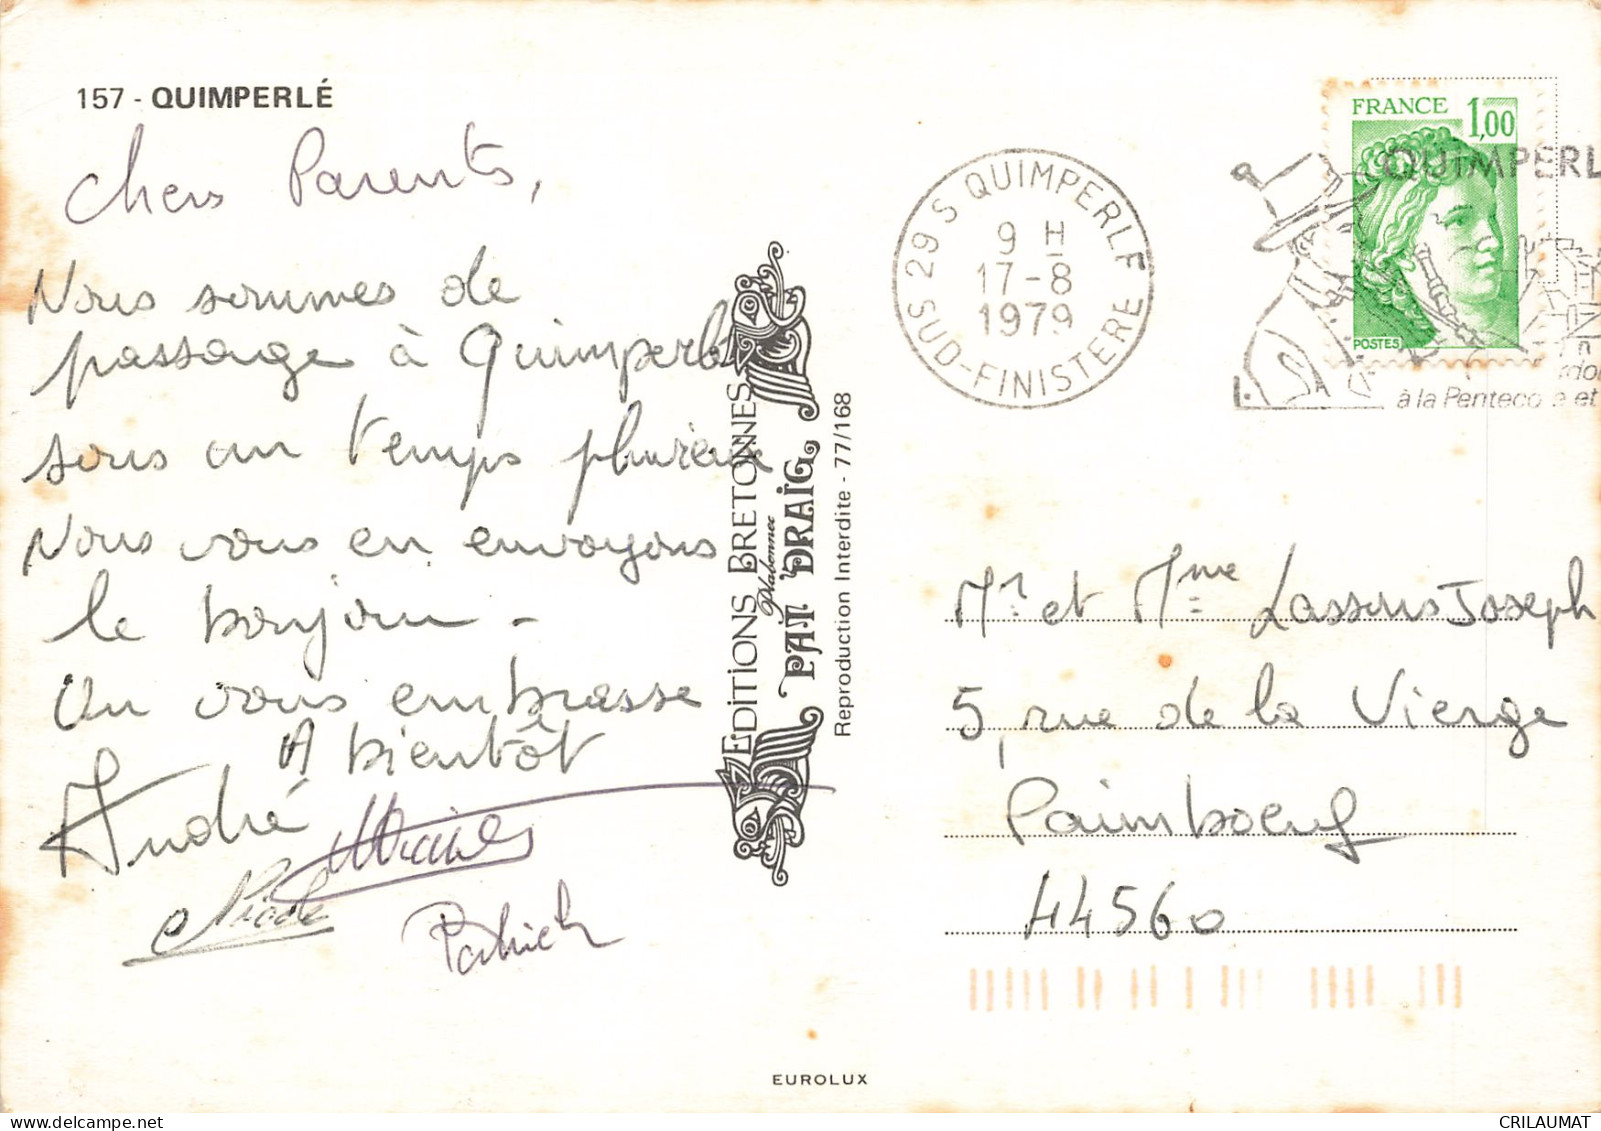 157 - QUIMPERLÉ
Chers Parents,
Nous sommes de
passage à Quimperlé
sous un temps pluvieux
Nous vous en envoyons
le bonjour -
On vous embrasse
A bientôt
André
Nicole
Patrick
EDITIONS BRETONNES
Plabennec
PAÏ DRAÏG
Reproduction Interdite - 77/168
EUROLUX
29 S QUIMPERLE
9 H
17-8
1979
SUD-FINISTERE
FRANCE 1,00
POSTES
QUIMPERL
à la Penteco e et
Mr et Mme Lassous Joseph
5, rue de la Vierge
Paimboeuf
44560
CRILAUMAT